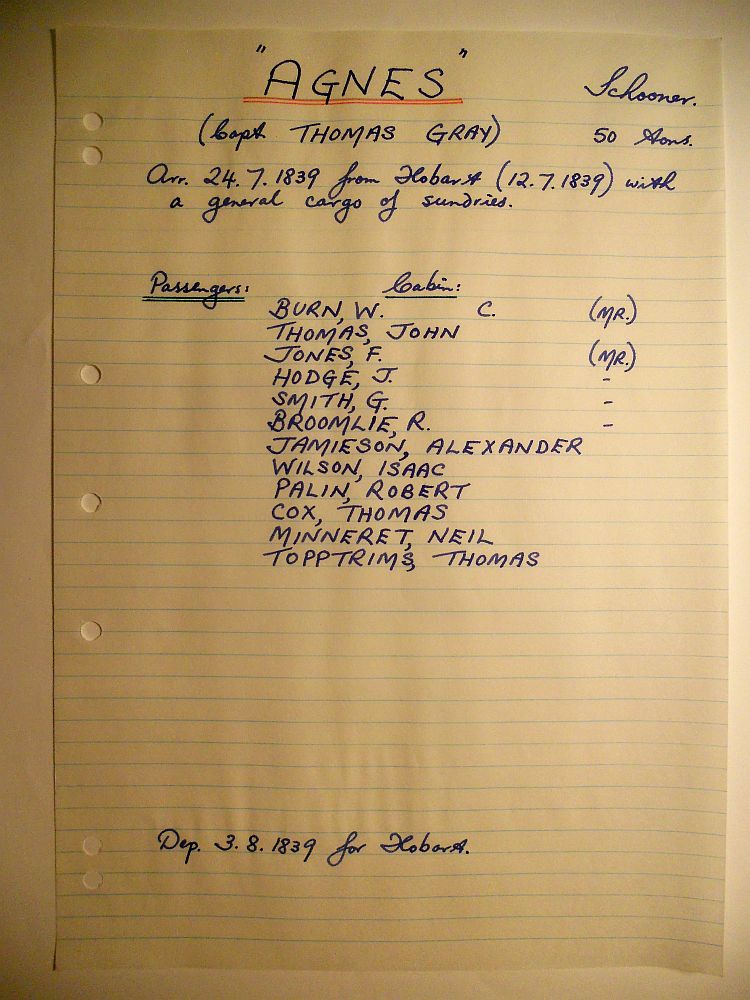 "AGNES" Schooner.
(Capt THOMAS GRAY) 50 tons.
Arr. 24.7.1839 from Hobart (12.7.1839) with
a general cargo of sundries.
Passengers: Cabin:
BURN, W. C. (MR.)
THOMAS, JOHN
JONES, F. (MR.)
HODGE, J. -
SMITH, G. -
BROOMLIE, R. -
JAMIESON, ALEXANDER
WILSON, ISAAC
PALIN, ROBERT
COX, THOMAS
MINNERET, NEIL
TOPPTRIMS, THOMAS
Dep. 3.8.1839 for Hobart.